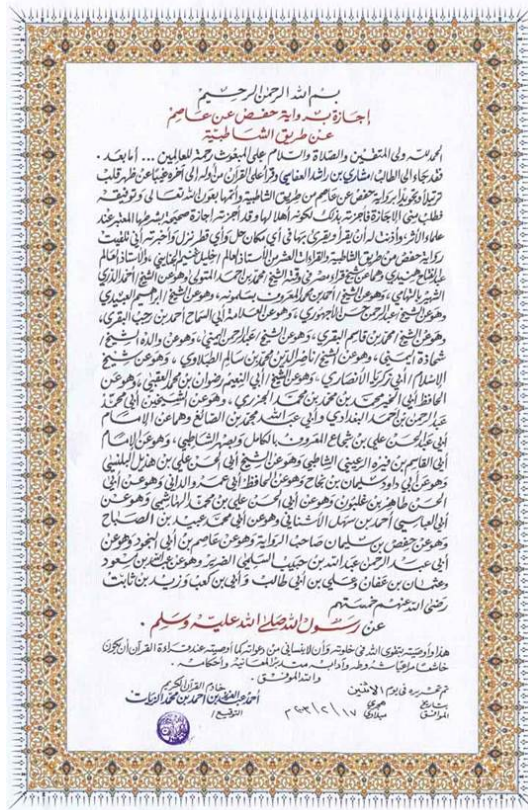 بسم الله الرحمن الرحيم
إجازة برواية حفص عن عاصم
عن طريق الشاطبية
الحمد لله ولي المتقين والصلاة والسلام على المبعوث رحمة للعالمين ... أما بعد .
فقد جاء إلي الطالب مشاري بن راشد العفاسي وقرأ علي القرآن من أوله إلى آخره غيبًا عن ظهر قلب
ترتيلًا وتجويدًا برواية حفص عن عاصم من طريق الشاطبية وأتمها بعون الله تعالى وتوفيقه
فطلب مني الإجازة فأجزته بذلك لكونه أهلا لها وقد أجزته إجازة صحيحة بشرطها المعتبر عند
علماء الأثر، وأذنت له أن يقرأ ويقرئ بها في أي مكان حل وأي قطر نزل وأخبرته أني تلقيت
رواية حفص من طريق الشاطبية والقراءات العشر من الأستاذ العالم / خليل الجنايني، والأستاذ العالم
عبد الفتاح هنيدي وهما عن شيخ قراء مصر في وقته الشيخ / محمد بن أحمد المتولي وهو عن الشيخ / أحمد الدري
الشهير بالتهامي، وهو عن الشيخ / أحمد بن محمد المعروف بسلمونه، وهو عن الشيخ / إبراهيم العبيدي
وهو عن الشيخ / عبد الرحمن حسن الأجهوري، وهو عن العلامة أبي السماح أحمد بن رجب البقري،
وهو عن الشيخ / محمد بن قاسم البقري، وهو عن الشيخ / عبد الرحمن اليمني، وهو عن والده الشيخ /
شحاذة اليمني، وهو عن الشيخ / ناصر الدين محمد بن سالم الطبلاوي، وهو عن شيخ
الإسلام / أبي زكريا الأنصاري، وهو عن الشيخ / أبي النعيم رضوان بن محمد العقبي، وهو عن
الحافظ أبي الخير محمد بن محمد بن محمد الجزري، وهو عن الشيخين أبي محمد
عبد الرحمن بن أحمد البغدادي وأبي عبد الله محمد بن الصائغ وهما عن الإمام
أبي الحسن علي بن شجاع المعروف بالكامل وبصهر الشاطبي، وهو عن الإمام
أبي القاسم بن فيره الرعيني الشاطبي وهو عن الشيخ أبي الحسن علي بن هذيل البلنسي
وهو عن أبي داود سليمان بن نجاح وهو عن الحافظ أبي عمرو الداني وهو عن أبي
الحسن طاهر بن غلبون وهو عن أبي الحسن علي بن محمد الهاشمي وهو عن
أبي العباس أحمد بن سهل الأشناني وهو عن أبي محمد عبيد بن الصباح
وهو عن حفص بن سليمان صاحب الرواية وهو عن عاصم بن أبي النجود وهو عن
أبي عبد الرحمن عبد الله بن حبيب السلمي الضرير وهو عن عبد الله بن مسعود
وعثمان بن عفان وعلي بن أبي طالب وأبي بن كعب وزيد بن ثابت
رضي الله عنهم خمستهم
عن رسول الله صلى الله عليه وسلم .
هذا وأوصيته بتقوى الله في خلوته وأن لا ينساني من دعواته كما أوصيته عند قراءة القرآن أن يكون
خاشعًا مراعيًا شروطه وآدابه متدبرًا لمعانيه وأحكامه .
والله الموفق .
تم تحريره في يوم الاثنين
بتاريخ هجري
الموافق ١٧ / ٢ / ٢٠٠٣م ميلادي
خادم القرآن الكريم
أحمد عبد العزيز بن أحمد بن محمد الزيات
التوقيع /